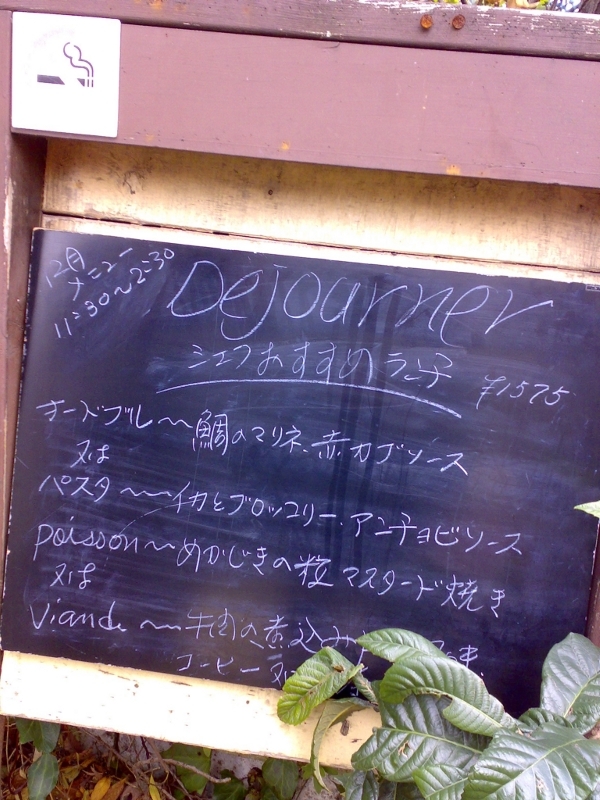 12月
メニュー
11:30〜2:30
Dejourner
シェフおすすめランチ ¥1575
オードブル〜鯛のマリネ、赤カブソース
又は
パスタ〜イカとブロッコリー、アンチョビソース
poisson〜めかじきの粒マスタード焼き
又は
Viande〜牛肉の煮込み
コーヒー又